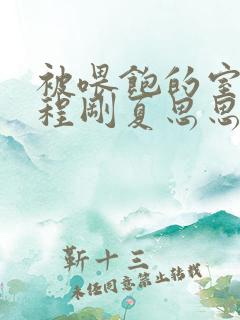 被喂飽的室
程剛夏思思
靳十三
未经同意禁止转载